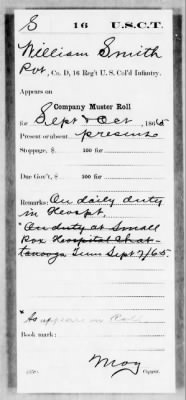 S 16 U.S.C.T.
William Smith
Pvt, Co. D, 16 Reg't U. S. Col'd Infantry.
Appears on
Company Muster Roll
for Sept & Oct, 1865
Present or absent present
Stoppage, $ 100 for
Due Gov't, $ 100 for
Remarks: On daily duty
in Hospt.
*On duty at Small
Pox Hospital Chat-
tanooga Tenn Sept 7/65.
*As appears on Roll
Book mark:
May
Copyist.